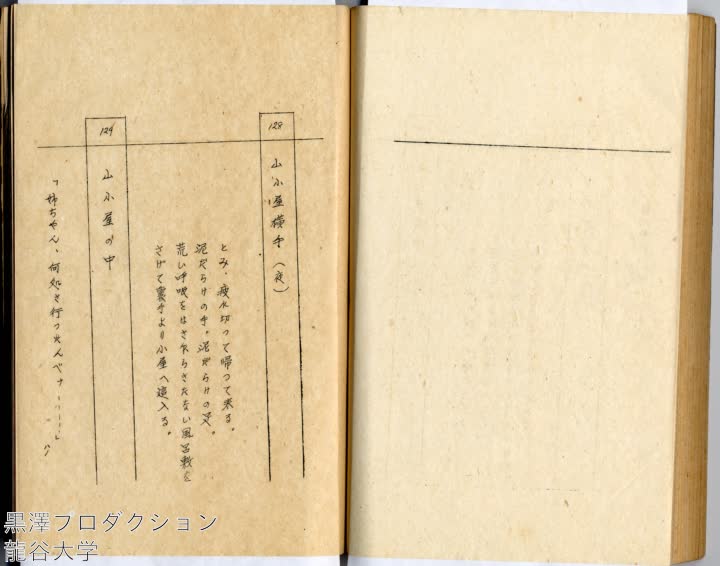 128
山小屋横手（夜）
とみ、疲れ切って帰って来る。
泥だらけの手。泥だらけの足。
荒い呼吸をはきながらきたない風呂敷を
さげて裏手より小屋へ這入る。
129
山小屋の中
「姉ちゃん、何処さ行った
黒澤プロダクション
龍谷大学